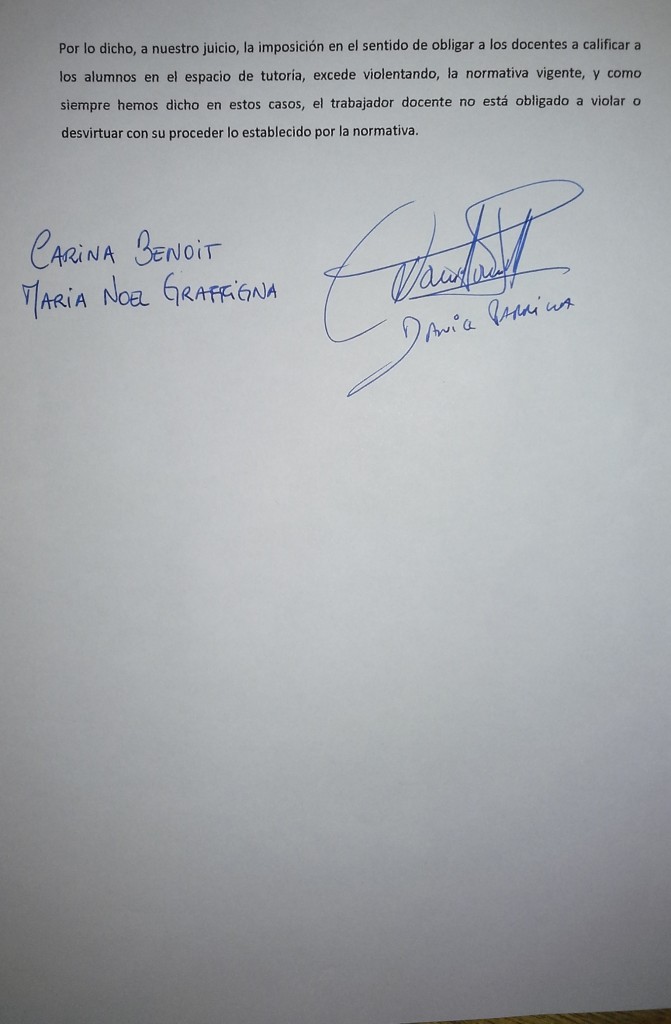 Por lo dicho, a nuestro juicio, la imposición en el sentido de obligar a los docentes a calificar a
los alumnos en el espacio de tutoría, excede violentando, la normativa vigente, y como
siempre hemos dicho en estos casos, el trabajador docente no está obligado a violar o
desvirtuar con su proceder lo establecido por la normativa.
CARINA BENOIT
MARIA NOEL GRAFFIGNA